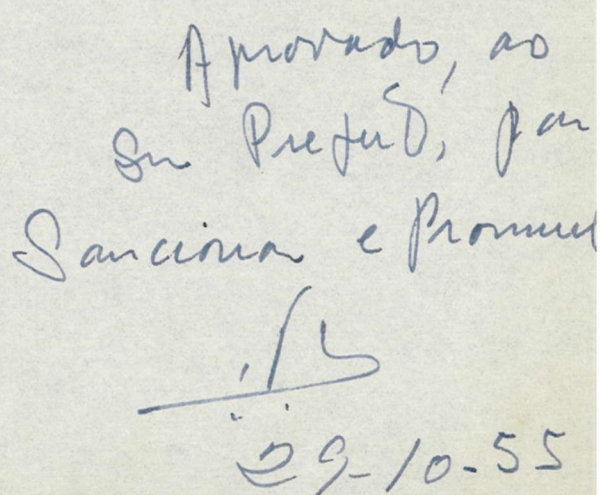 Aprovado, ao
Snr Prefeito, par
Sancionar e Promul
29-10-55